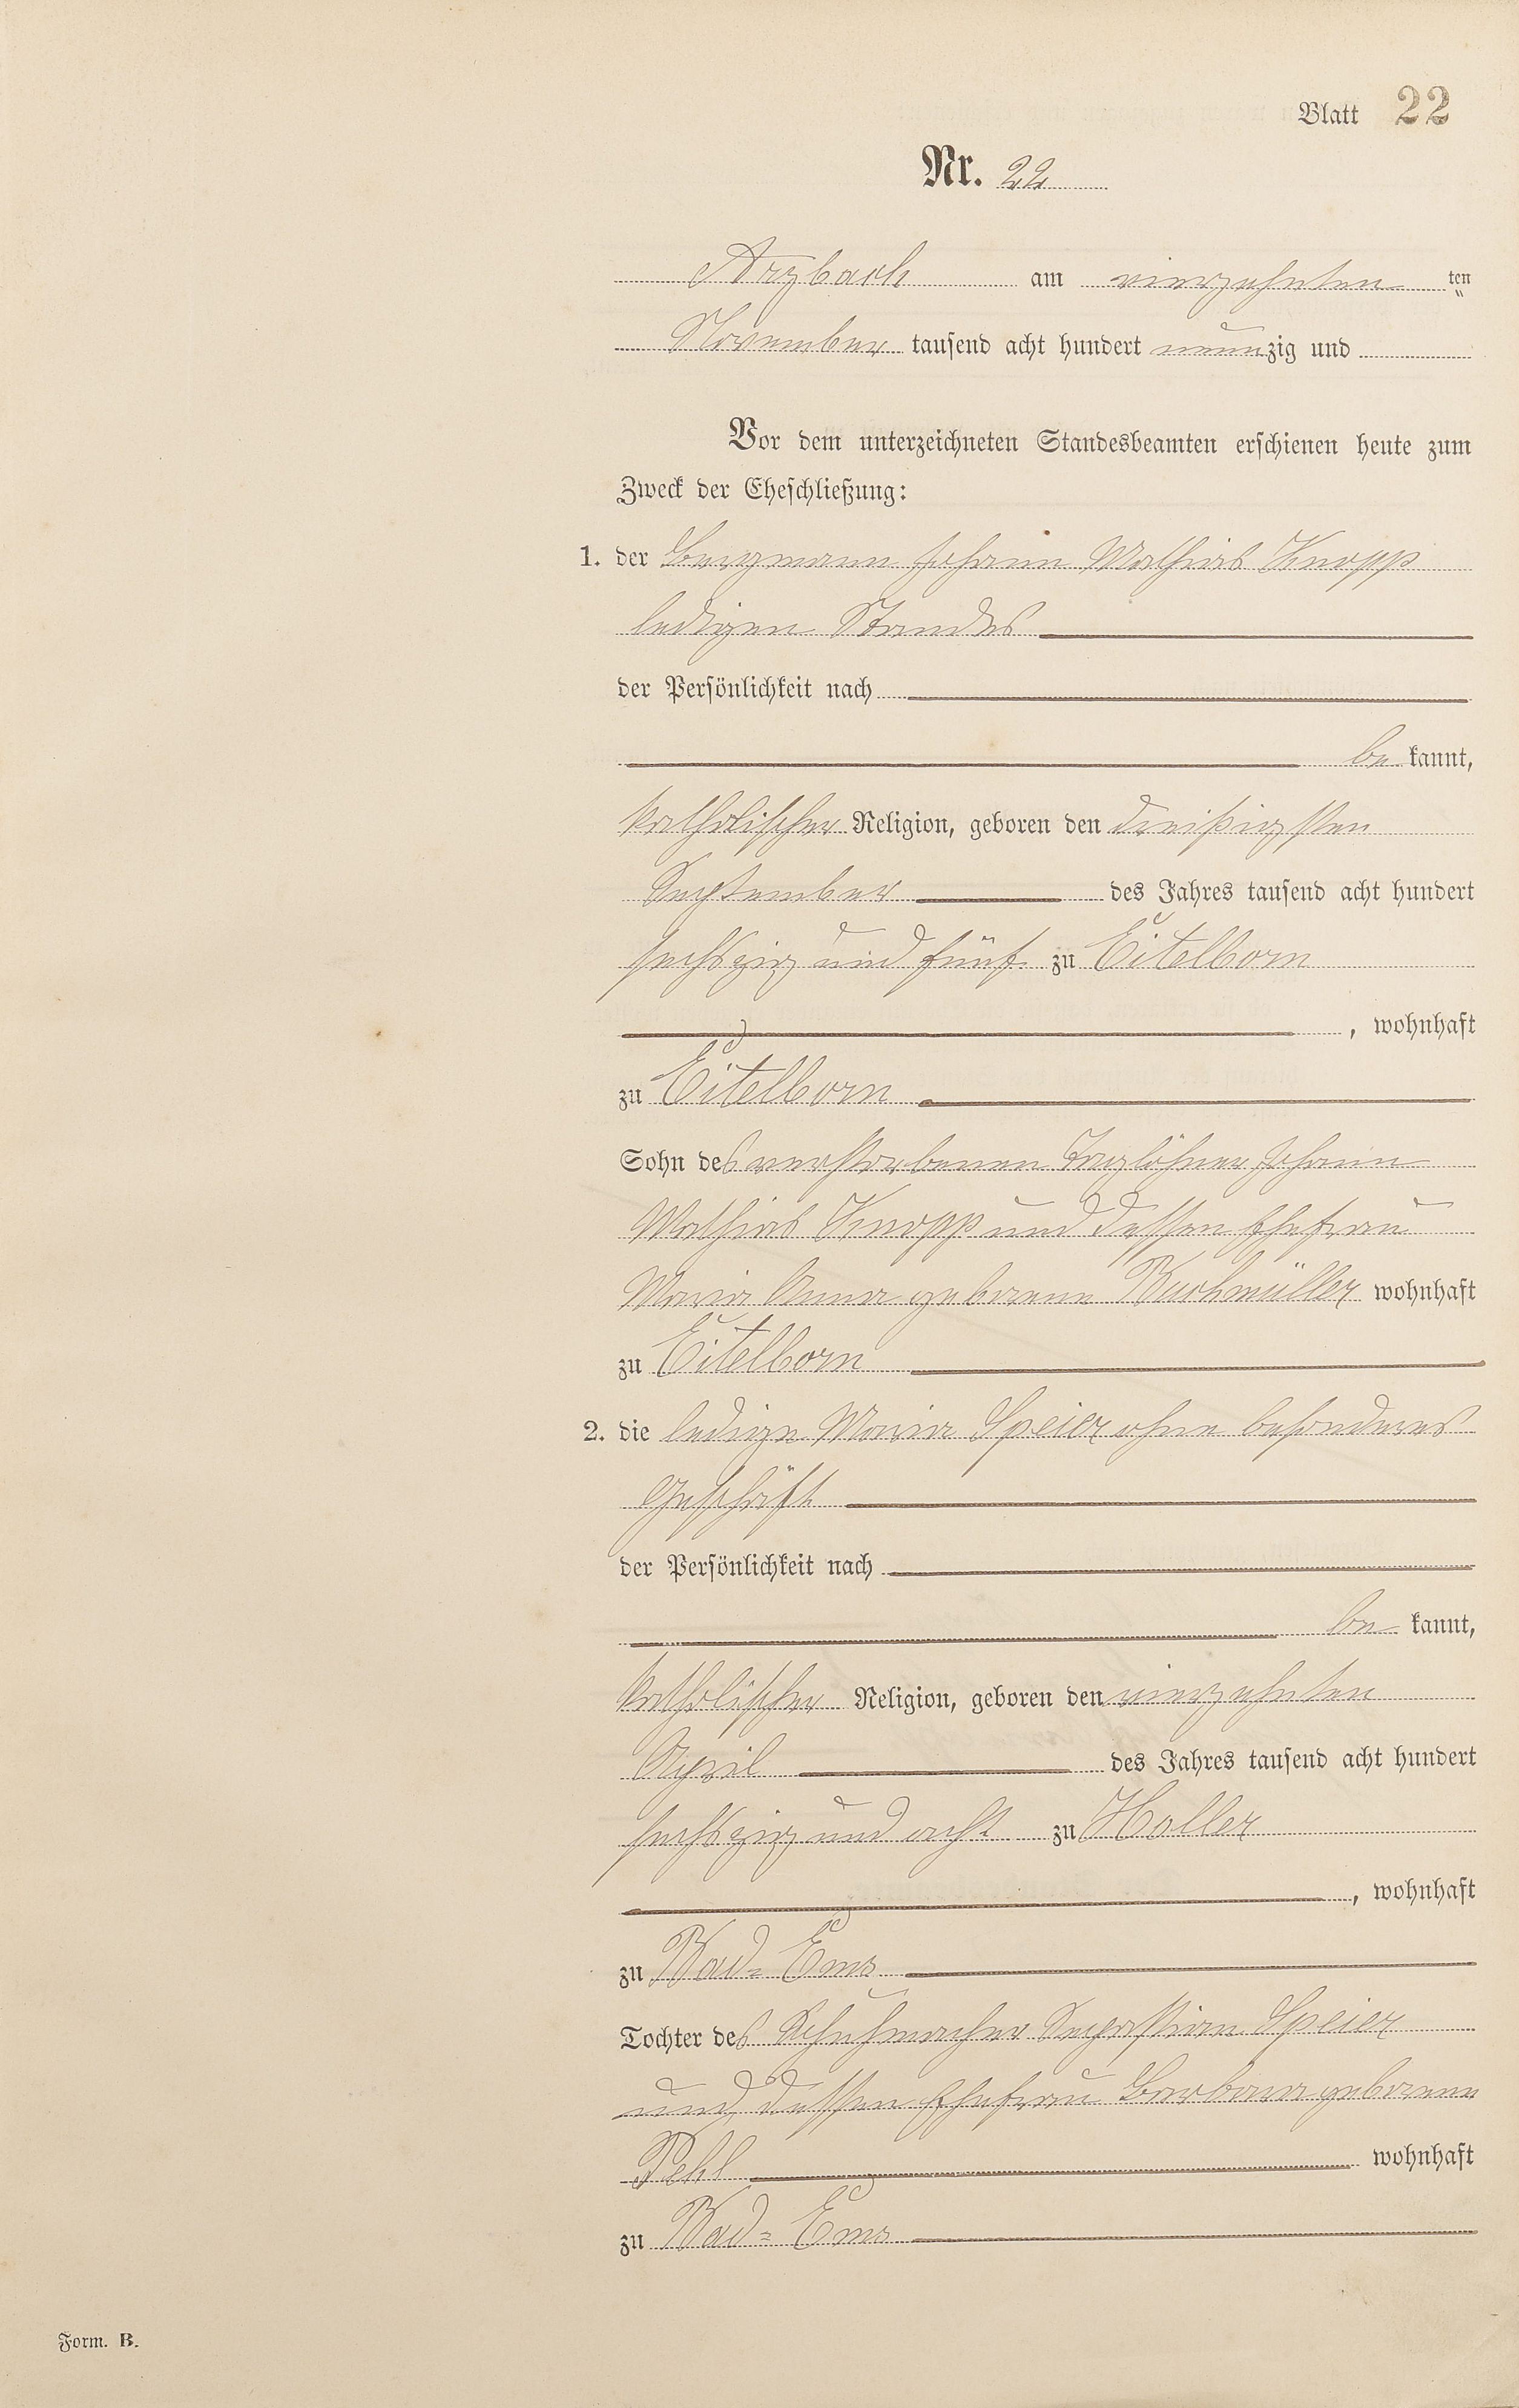 Blatt 22
Nr. 22
Arzbach am vierzehnten ten
November tausend acht hundert neunzig und
Vor dem unterzeichneten Standesbeamten erschienen heute zum
Zweck der Eheschließung:
1. der Bergmann Johann Mathias Knopp
ledigen Standes
der Persönlichkeit nach
be kannt,
katholischer Religion, geboren den dreißigsten
September des Jahres tausend acht hundert
sechszig und fünf zu Eitelborn
, wohnhaft
zu Eitelborn
Sohn des verstorbenen Taglöhner Johann
Mathias Knopp und dessen Ehefrau
Maria Anna geborene Buchmüller wohnhaft
zu Eitelborn
2. die ledige Maria Speier ohne besonderes
Geschäft
der Persönlichkeit nach
be kannt,
katholischer Religion, geboren den vierzehnten
April des Jahres tausend acht hundert
sechszig und acht zu Holler
, wohnhaft
zu Bad-Ems
Tochter des Schuhmacher Speier
und dessen Ehefrau Barbara geborene
Pehl wohnhaft
zu Bad-Ems
Form. B.